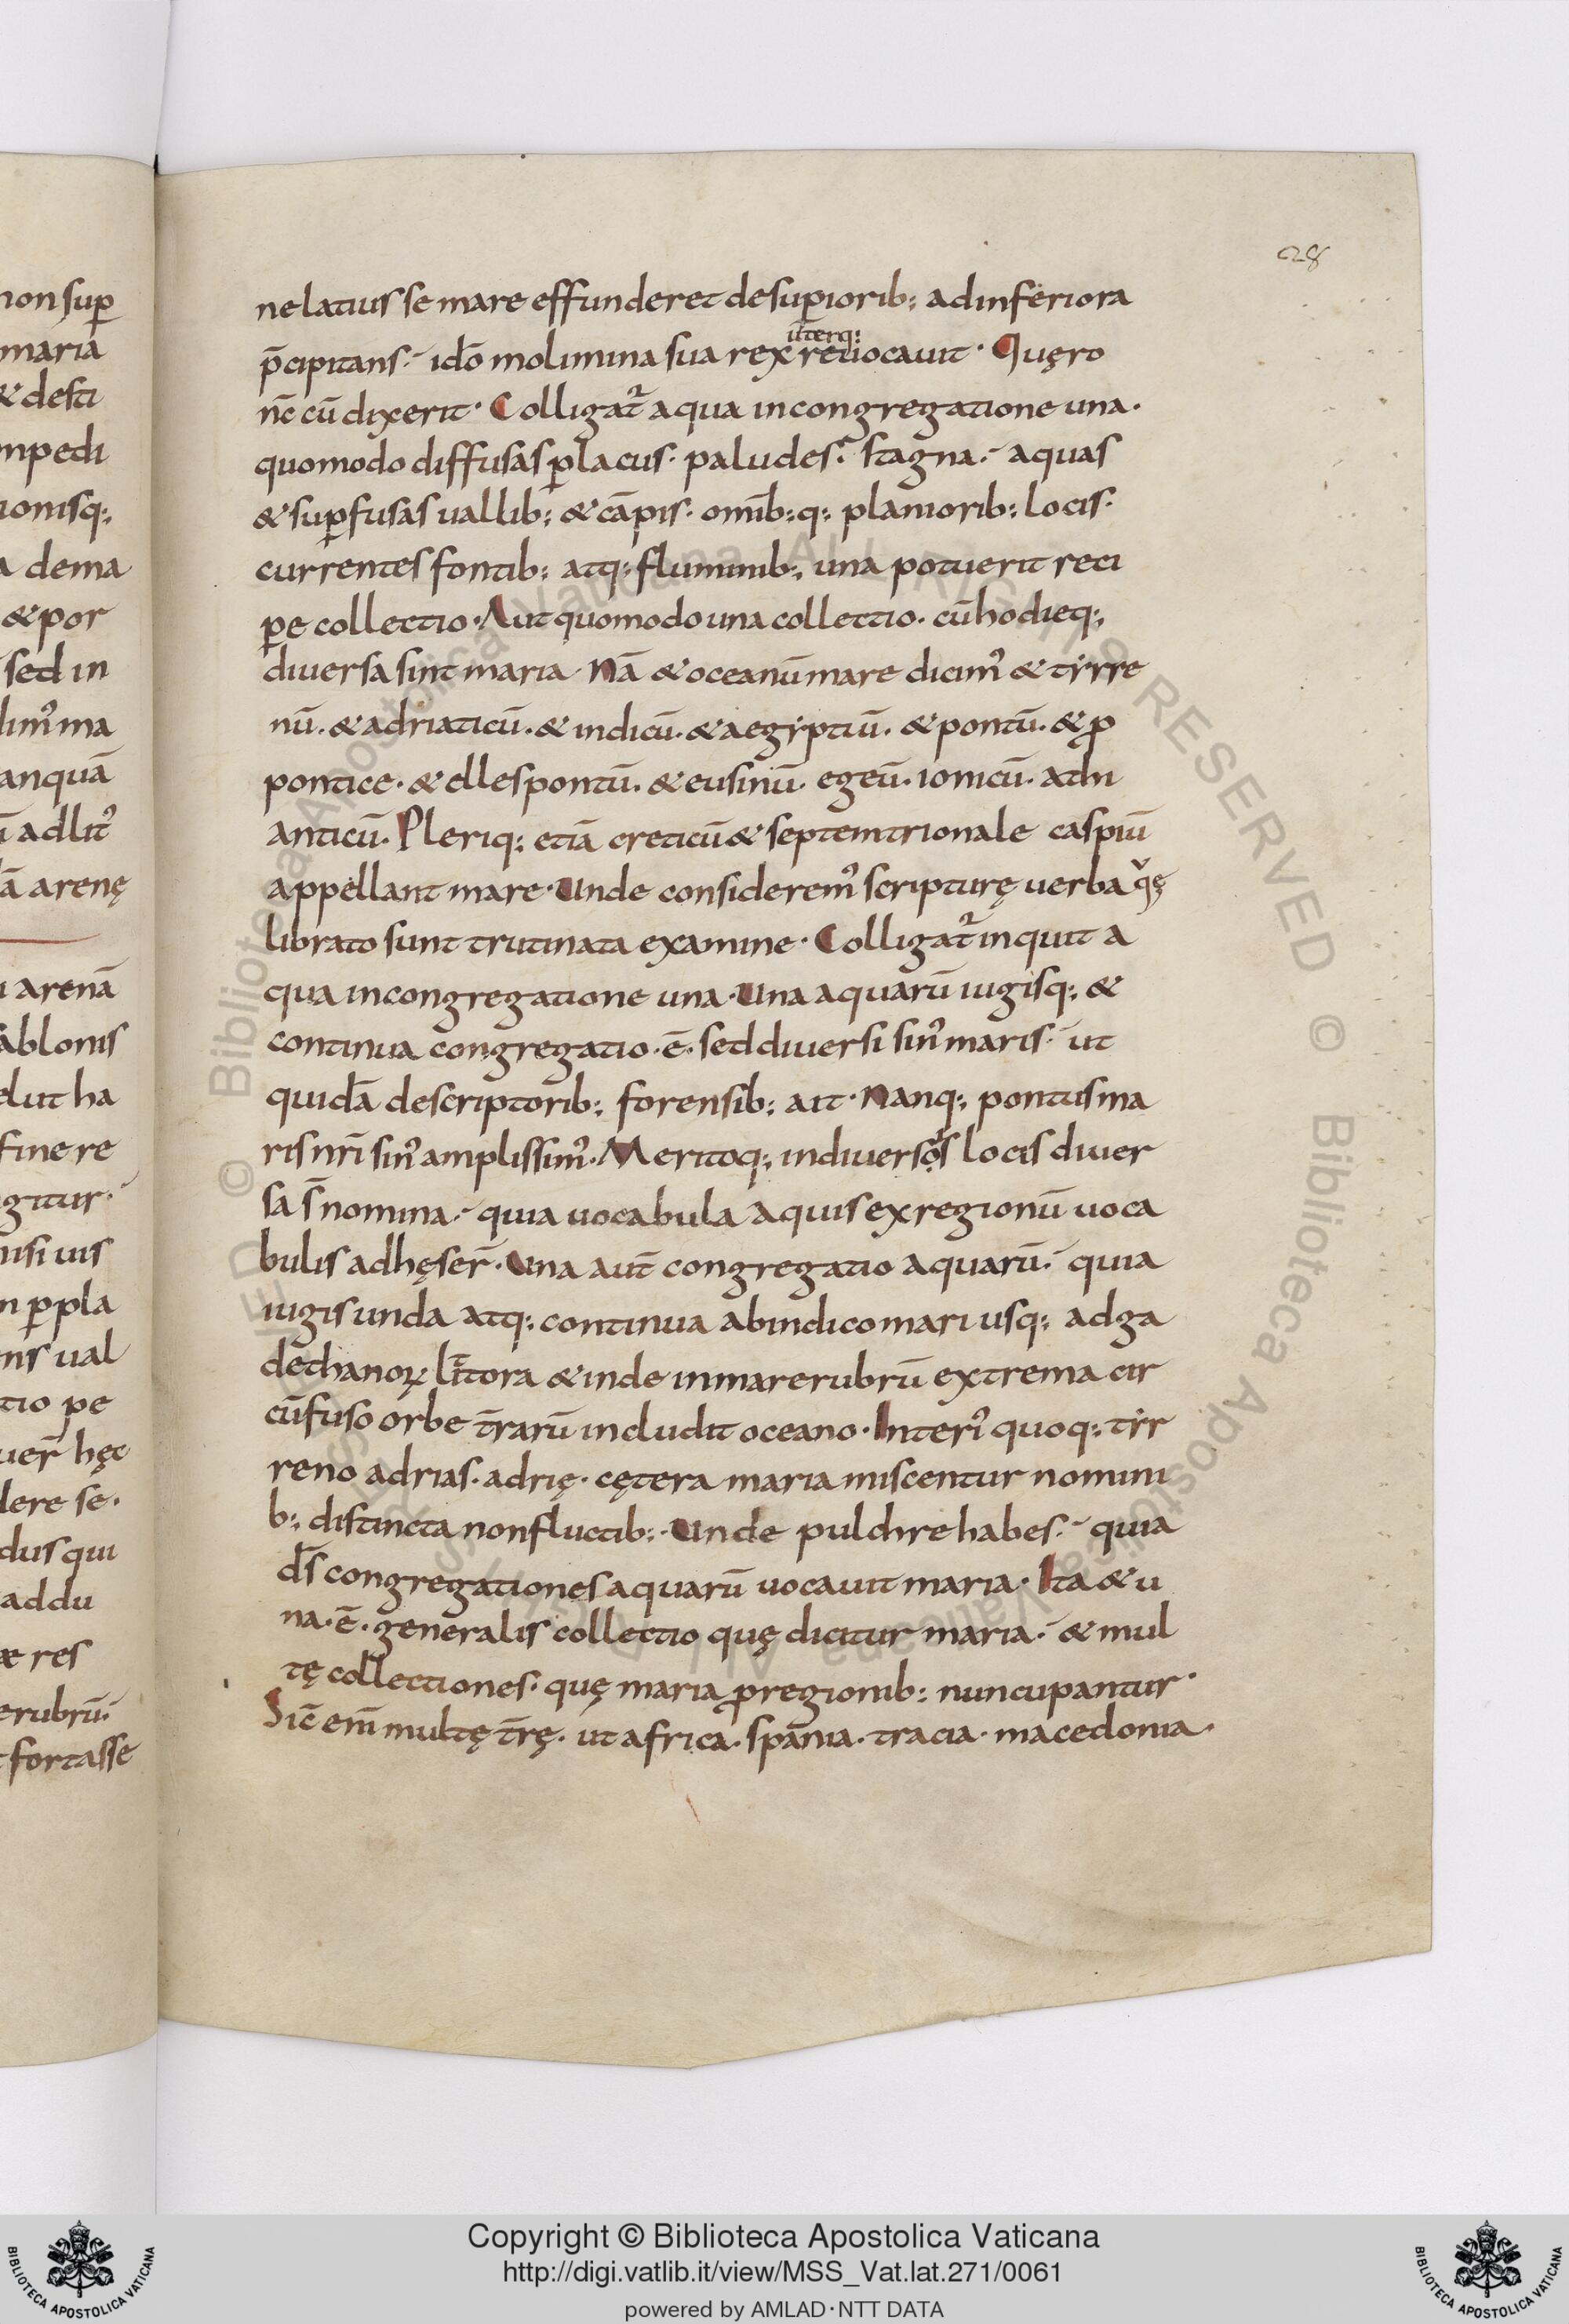 non sup̱
maria
& desti
mpedi
ionisq:,
a dema
& por
sed in
lim᾽ ma
anquā
ī adlit᾽
ā arenę
ı arenā
sablonis
elut ha
fine re
gitur.
nisi uis
n p̱pla
ens ual
tio pe
uer̄ hęc
dere se.
dus qui
addu
æ res
erubrū.
fortasse
28
ne latius se mare effunderet de sup̱iorib: ad inferiora
p̄cipitans. idō molimina sua rex ut̄erq: reuocauit. Quęro
nc̄ cū dixerit. Colligat᾽ aqua in congregatione una.
quomodo diffusas p̱ lacus. paludes. stagna. aquas
& sup̱fusas uallib: & cāpis. omīb:q: planiorib: locis.
currentes fontib: atq: fluminib:, una potuerit reci
pe collectio. Aut quomodo una collectio. cū hodieq:,
diuersa sint maria. Nā & oceanū mare dicim᾽ & tẏrre
nū. & adriaticū. & indicū. & aegẏptiū. & pontū. & ꝓ
pontice. & ellespontū. & eusinū. egeū. ionicū. athl
anticū. Pleriq: etiā creticū & septemtrionale caspiū
appellant mare. Unde considerem᾽ scripturę uerba qͮę
librato sunt trutinata examine. Colligat᾽ inquit a
qua in congregatione una. Una aquarū iugisq:, &
continua congregatio. ē. sed diuersi sin᾽ maris. ut
quidā de scriptorib:, forensib: ait. Nanq:, pontus ma
ris nr̄i sin᾽ amplissim᾽. Meritoq:, in diuersoⁱs locis diuer
sa s̄ nomina. quia uocabula aquis ex regionū uoca
bulis adhęser̄. Una aut̄ congregatio aquarū. quia
iugis unda atq: continua ab indico mari usq: ad ga
dethanoꝝ līttora & inde in mare rubrū extrema cir
cūfuso orbe t̄rarū includit oceano. Interi᾽ quoq: tẏr
reno adrias. adrię. cętera maria miscentur nomini
b:, distincta non fluctib:. Unde pulchre habes. quia
d̄s congregationes aquarū uocauit maria. Ita & u
na. ē. generalis collectio quę dicitur maria. & mul
tę collectiones. quę maria ꝓ regionib: nuncupantur.
Sic̄ em̄ multę t̄rę. ut africa. spania. tracia. macedonia.
Copyright © Biblioteca Apostolica Vaticana
http://digi.vatlib.it/view/MSS_Vat.lat.271/0061
powered by AMLAD·NTT DATA
BIBLIOTECA APOSTOLICA VATICANA
BIBLIOTECA APOSTOLICA VATICANA